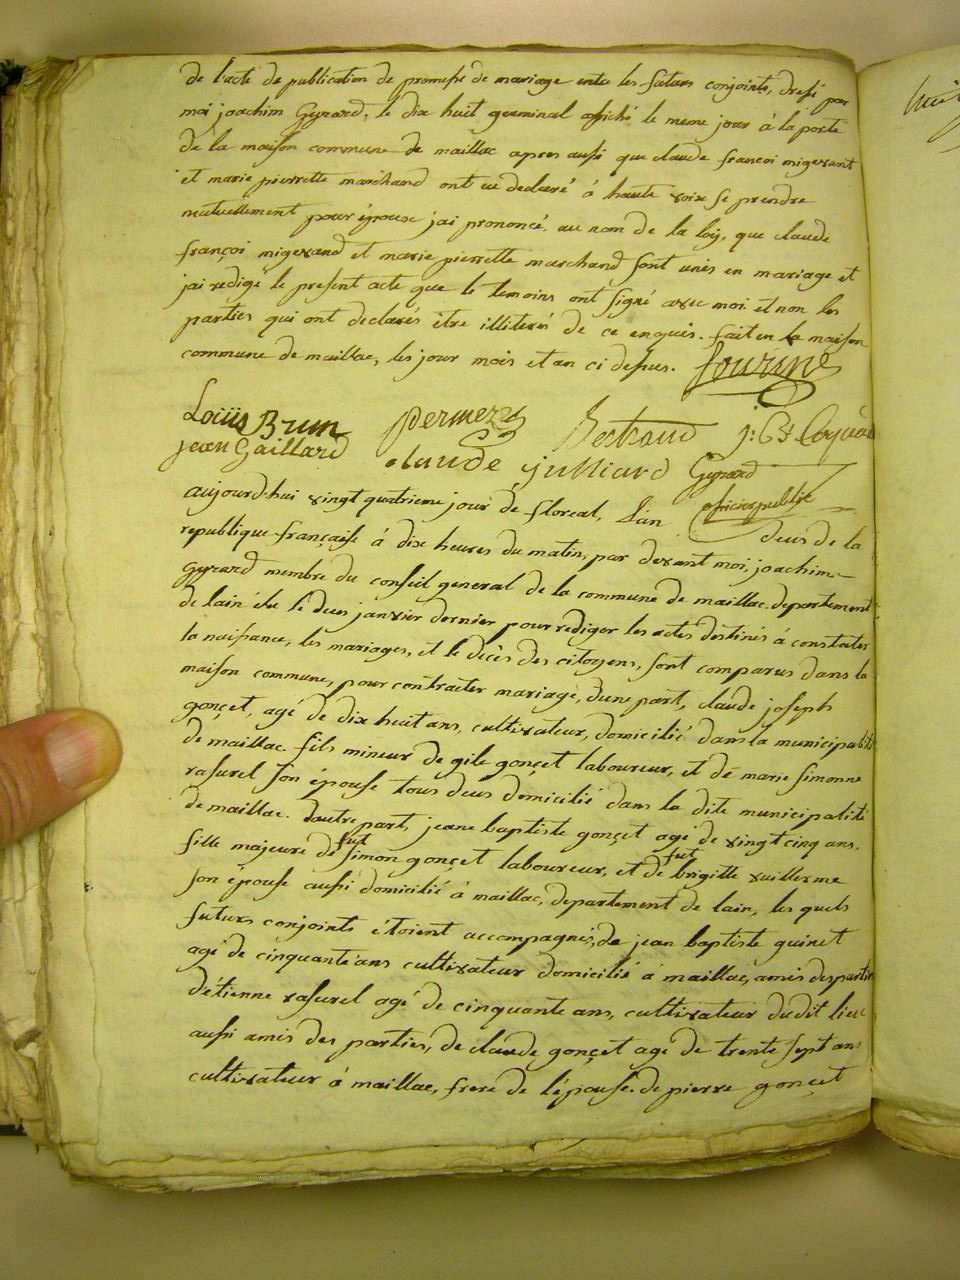 de l'acte de publication de promesse de mariage entre les futurs conjoints, dressé par
moi joachim Gyrard, le dix huit germinal affiché le meme jour à la porte
de la maison commune de maillac apres aussi que claude françoi migexant
et marie pierrette marchand ont eu declaré à haute voix se prendre
mutuellement pour époux j'ai prononcé au nom de la loÿ, que claude
françoi migerand et marie pierrette marchand sont unis en mariage et
j'ai redigé le present acte que le temoins ont signé avec moi et non les
parties qui ont declarés être illiterés de ce enquis. fait en la maison
commune de maillac, les jour mois et an ci dessus.
Louiis Brun Bertrand
jean Gaillard claude julliard Gyrard
officier public
aujourd'hui vingt quatrieme jour de floreal, l'an deus de la
republique française à dix heures du matin, par devant moi, joachim
Gyrard membre du conseil general de la commune de maillac departement
de lain élu le deus janvier dernier pour rediger les actes destinés à constater
la naissance, les mariages, et le décès des citoyens, sont comparus dans la
maison commune, pour contracter mariage, dune part, claude joseph
gonçet, agé de dix huit ans, cultivateur, domicilié dans la municipalité
de maillac fils mineur de gile gonçet laboureur, et de marie simonne
rasurel son épouse tous deus domicilié dans la dite municipalité
de maillac. dautre part, jeane baptiste gonçet agé de vingt cinq ans,
fille majeure de fut simon gonçet laboureur, et de fut brigitte vuillerme
son épouse aussi domicilié à maillac, departement de lain, les quels
futurs conjoints étoient accompagnés, de jean baptiste guinet
agé de cinquante ans cultivateur domicilié à maillac, amis des partie
d'étienne rasurel agé de cinquante ans, cultivateur dudit lieu
aussi amis des parties, de claude gonçet agé de trente sept ans
cultivateur à maillac, frere de l'épouse. de pierre gonçet